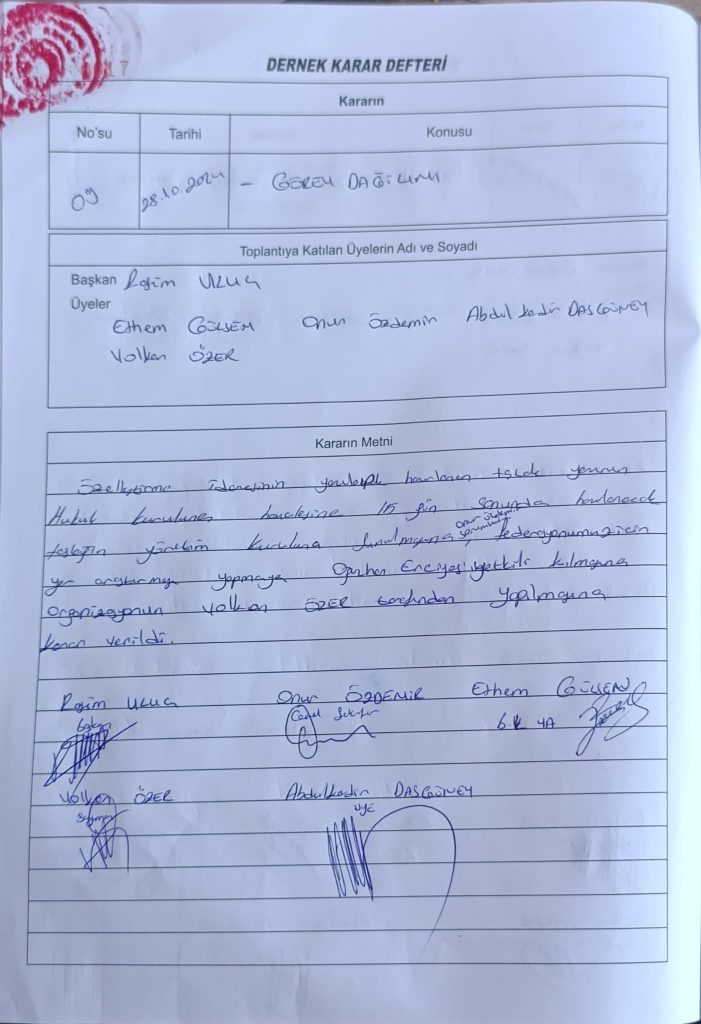 17
DERNEK KARAR DEFTERİ
Kararın
No'su Tarihi Konusu
09 28.10.2024 - GÖREV DAĞILIMI
Toplantıya Katılan Üyelerin Adı ve Soyadı
Başkan Rasim ULUÇ
Üyeler
Ethem GÜLŞEN Onur Özdemir Abdul kadir DASGÜNEY
Volkan ÖZER
Kararın Metni
Özelleştirme İdaresinin
Hukuk kuruluna 15 gün sonunda
yönetim kuruluna sunulmasına, Onur Özdemir federasyonumuz için
yer araştırması yapmaya Orhan Erciyes'i yetkili kılınmasına
Organizasyonun Volkan ÖZER tarafından yapılmasına
karar verildi.
Rasim ULUÇ Onur ÖZDEMİR Ethem GÜLŞEN
Başkan Genel Sekreter
Volkan ÖZER Abdulkadir DASGÜNEY
Sayman üye